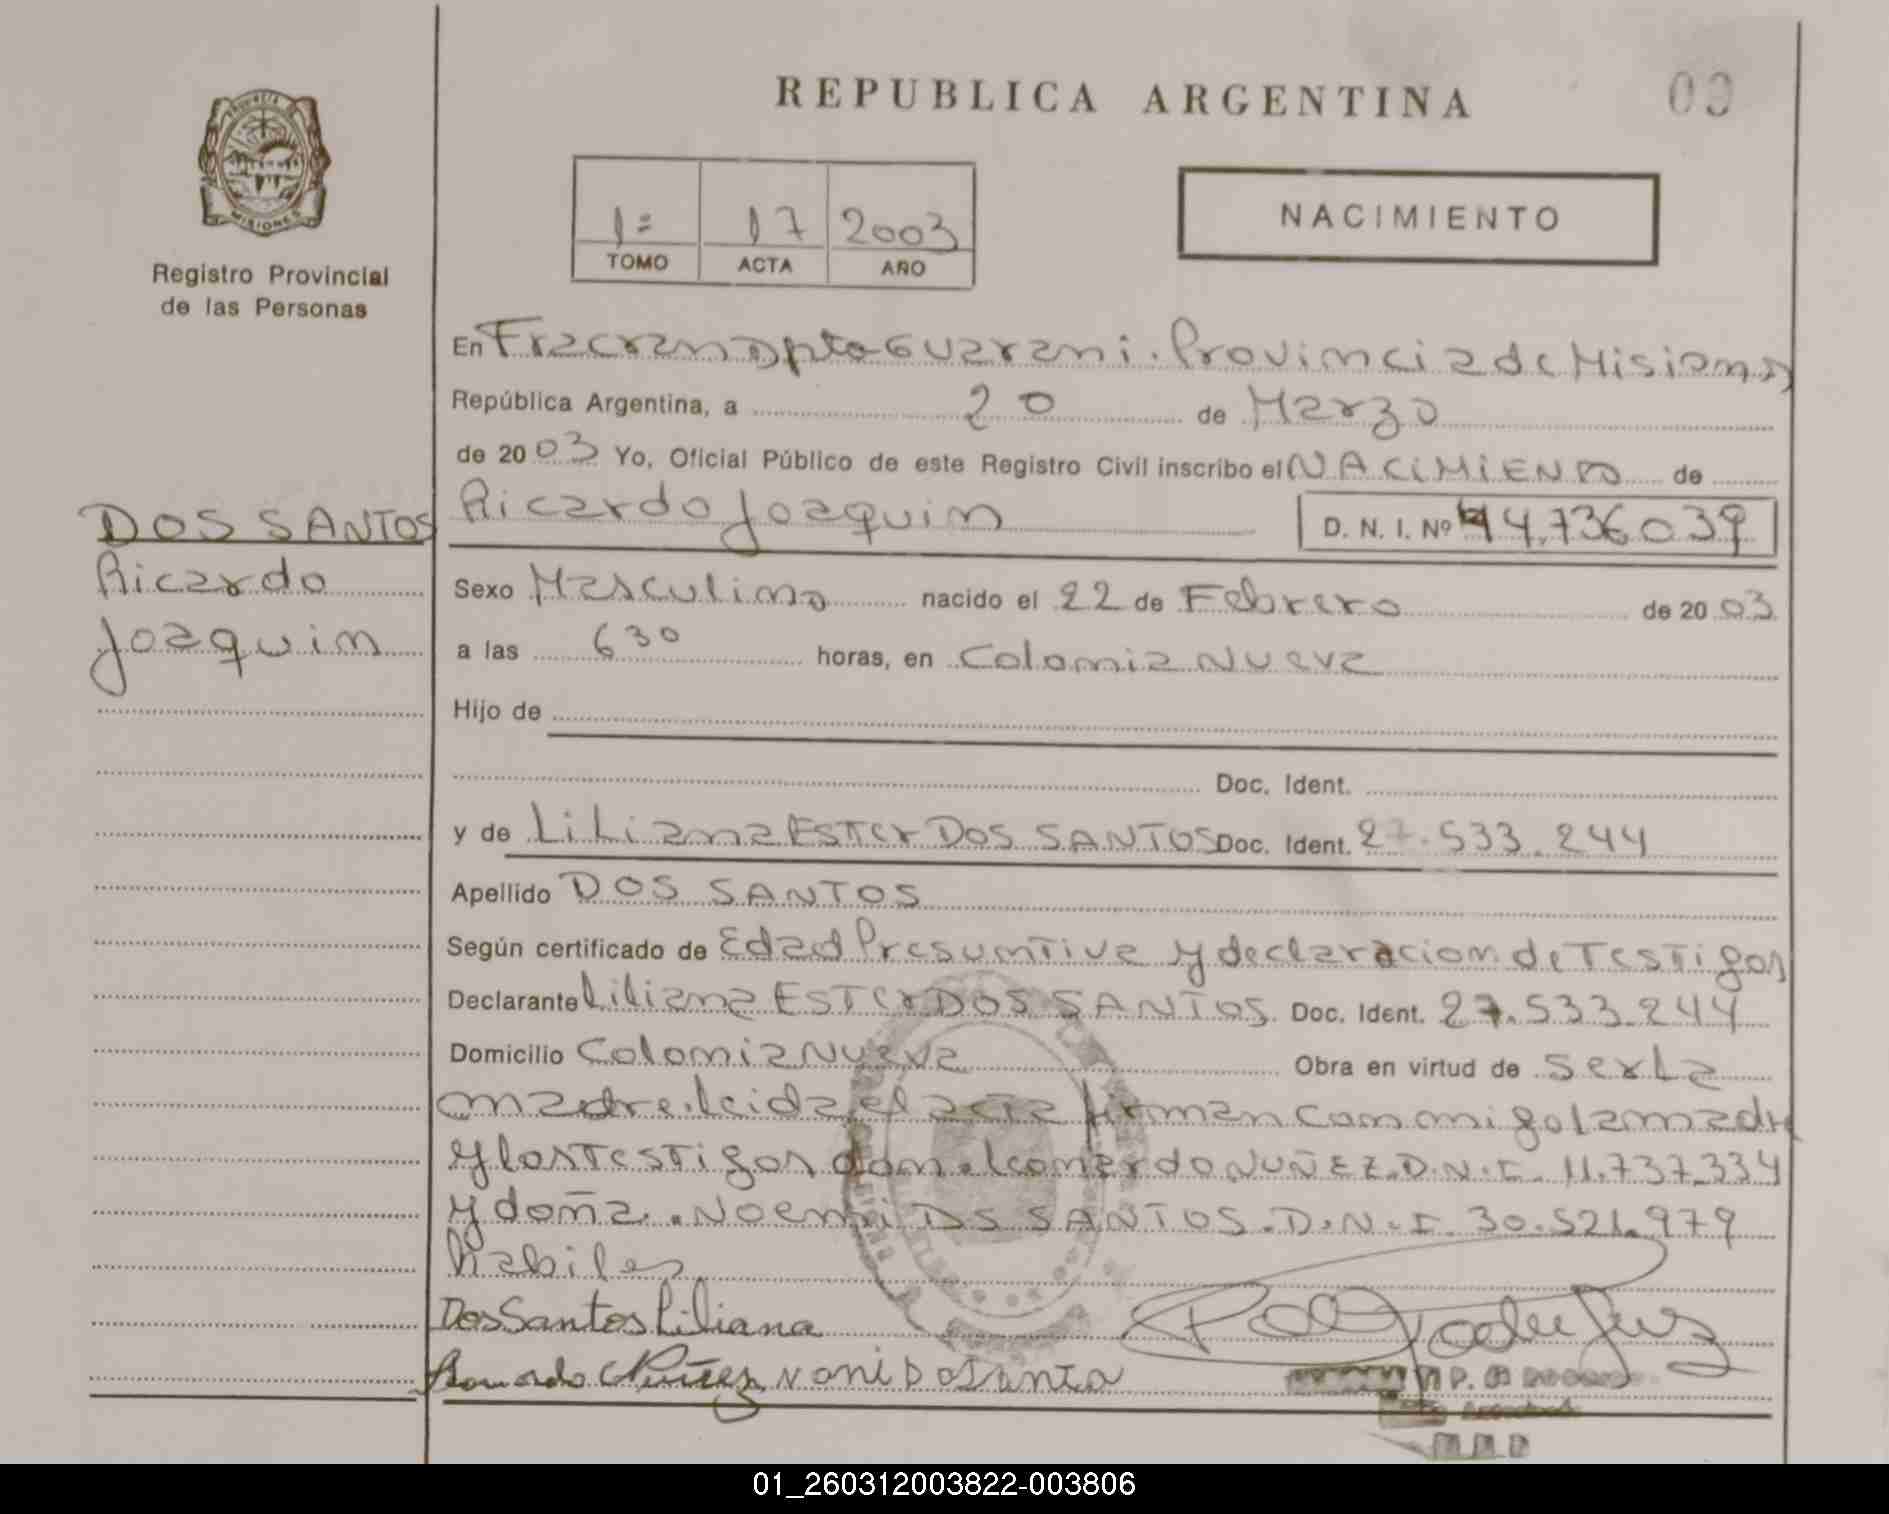 REPUBLICA ARGENTINA
PROVINCIA DE
MISIONES
Registro Provincial
de las Personas
1= 17 2003
TOMO ACTA AÑO
NACIMIENTO
En Fracran Dpto Guarani. Provincia de Misiones
República Argentina, a 20 de Marzo
de 2003 Yo, Oficial Público de este Registro Civil inscribo el NACIMIENTO de
DOS SANTOS
Ricardo
Joaquin
Ricardo Joaquin D. N. I. Nº 44.736.039
Sexo Masculino nacido el 22 de Febrero de 2003
a las 6 30 horas, en Colonia Nueva
Hijo de
Doc. Ident.
y de Liliana Ester DOS SANTOS Doc. Ident. 27.533.244
Apellido DOS SANTOS
Según certificado de Edad Presuntiva y declaracion de Testigos
Declarante Liliana Ester DOS SANTOS Doc. Ident. 27.533.244
Domicilio Colonia Nueva Obra en virtud de ser la
madre. leida el acta firman conmigo la madre
y los Testigos don. leonardo NUÑEZ. D.N.I. 11.737.334
y doña. Noemi DS SANTOS. D.N.I. 30.521.979
habiles
Dos Santos Liliana
Nuñez Noni Dosanta
01_260312003822-003806